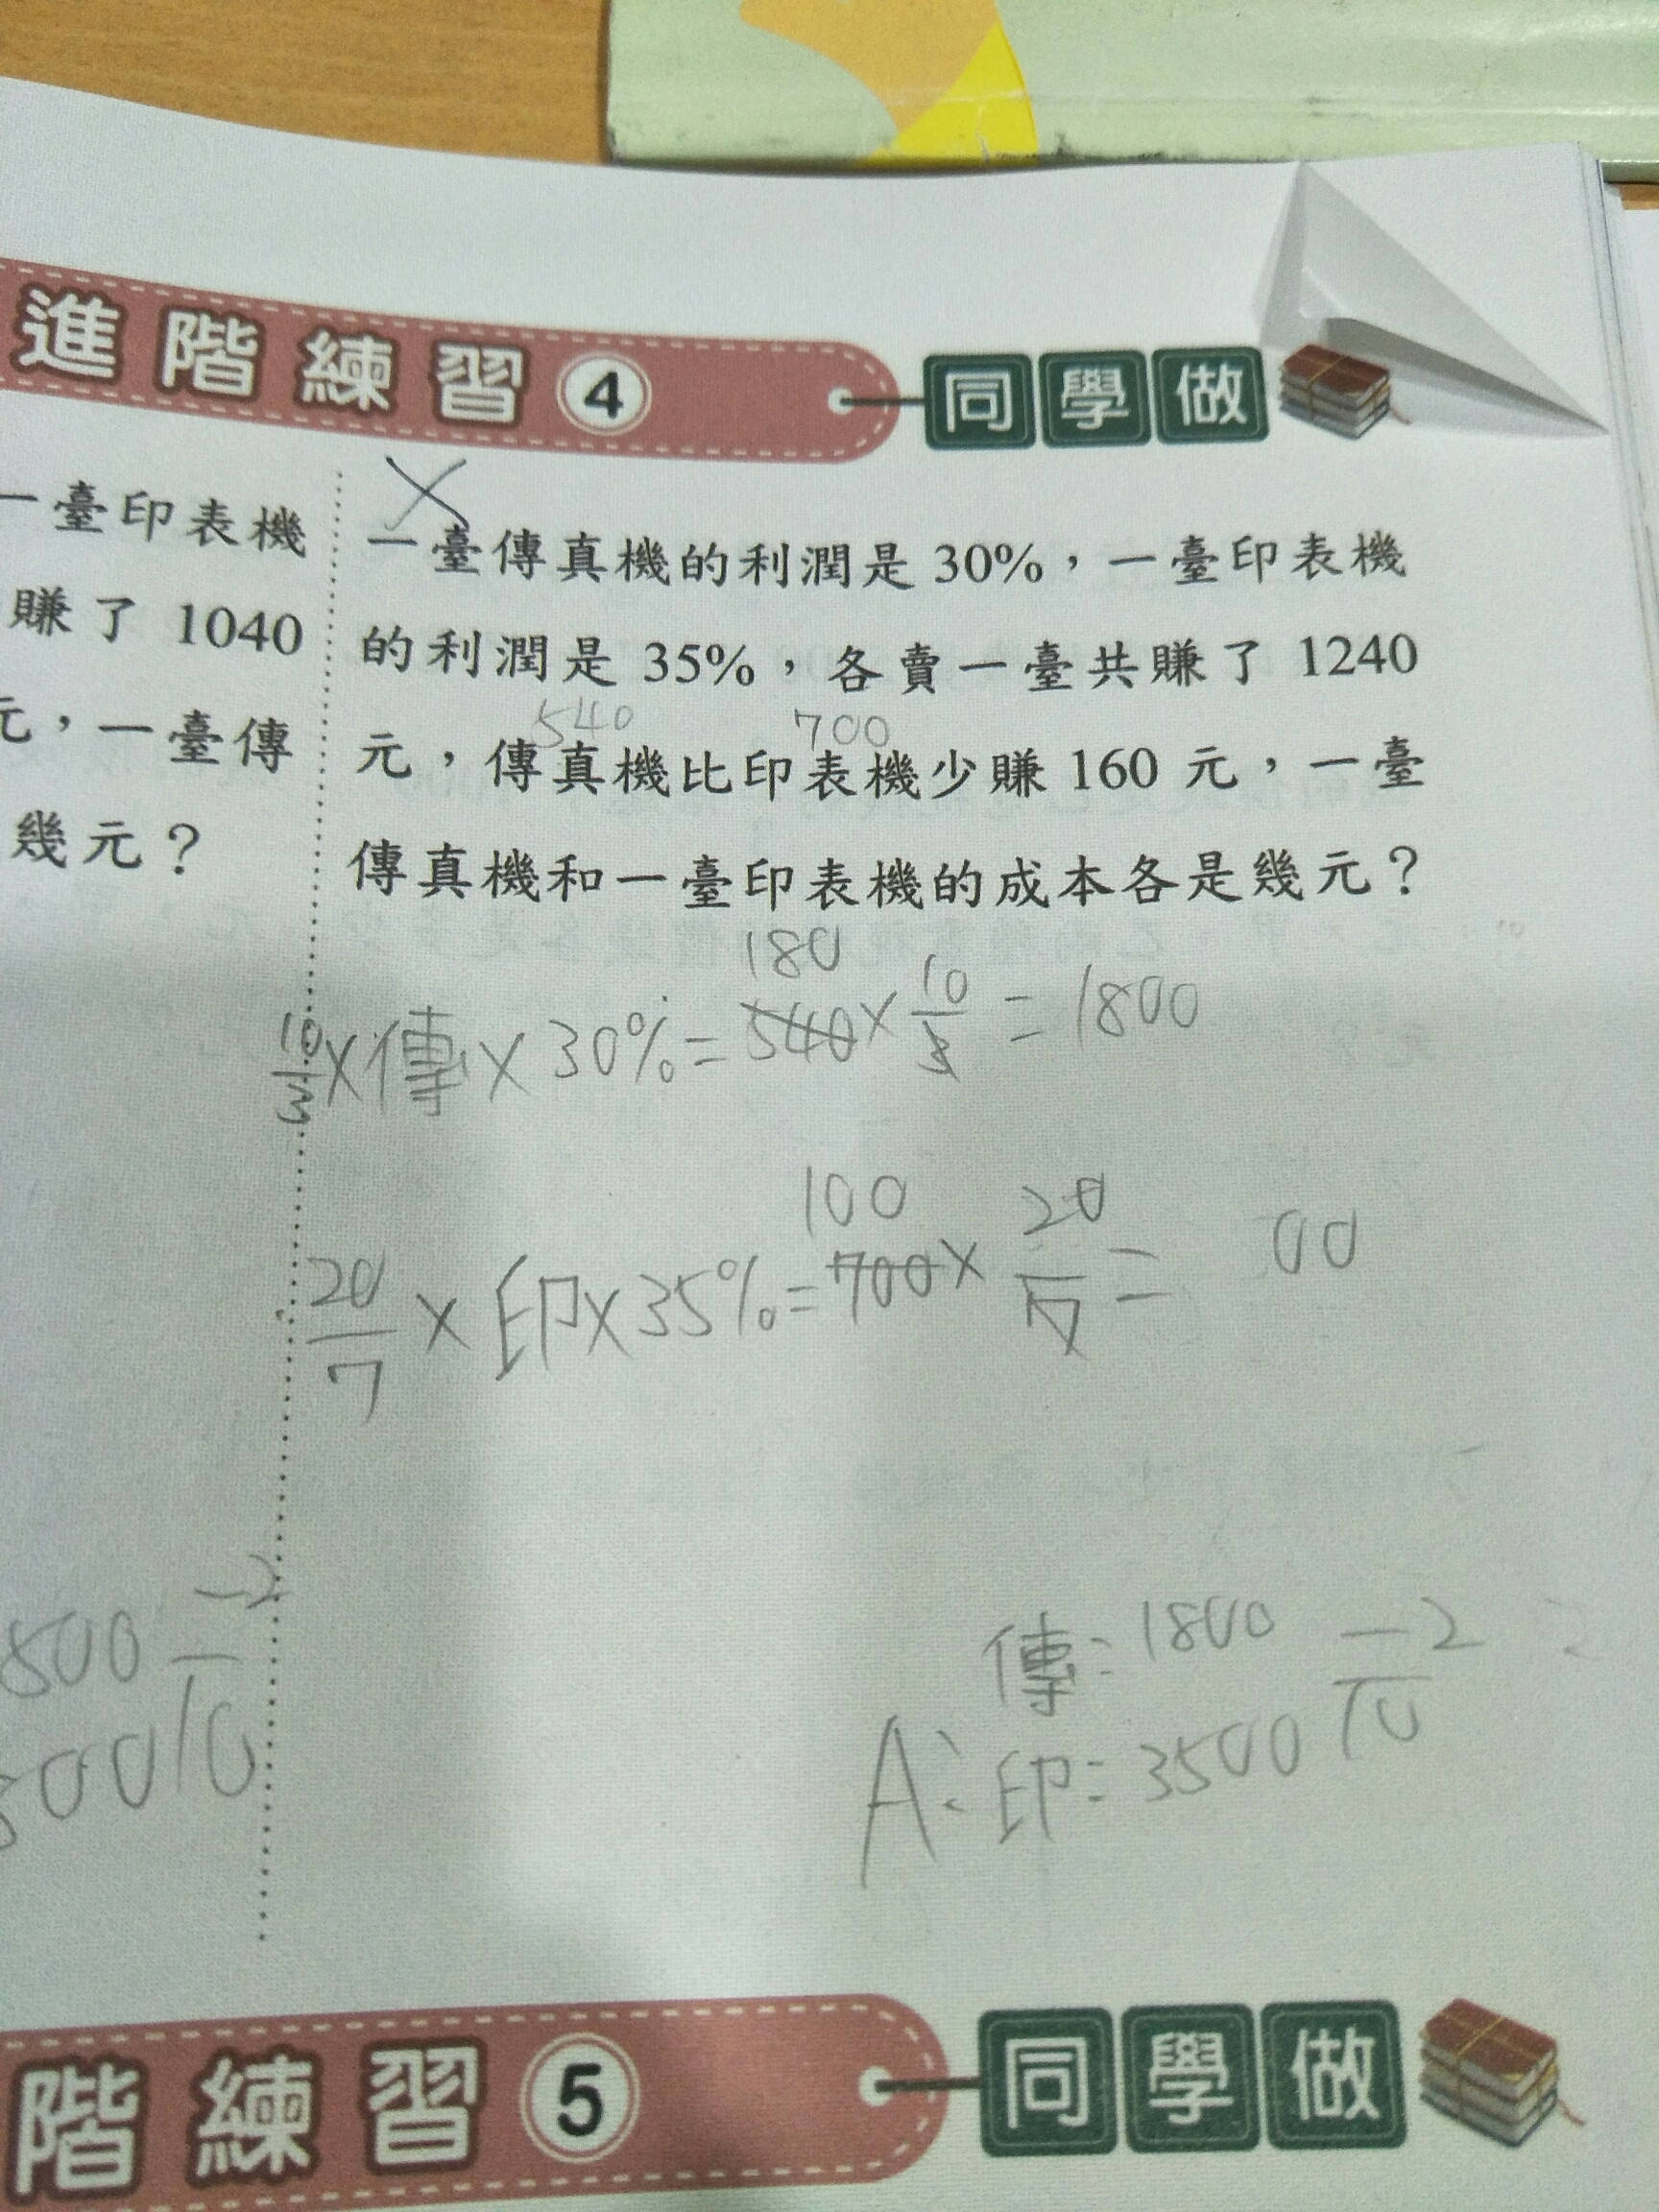 進階練習 4 同學做
一臺印表機
賺了 1040
元，一臺傳
幾元？
一臺傳真機的利潤是 30%，一臺印表機
的利潤是 35%，各賣一臺共賺了 1240
540 700
元，傳真機比印表機少賺 160 元，一臺
傳真機和一臺印表機的成本各是幾元？
180
10/3×傳×30%=540×10/3=1800
100
20/7×印×35%=700×20/7= 00
-2/10
傳：1800 -2/10
A：印：3500
階練習 5 同學做